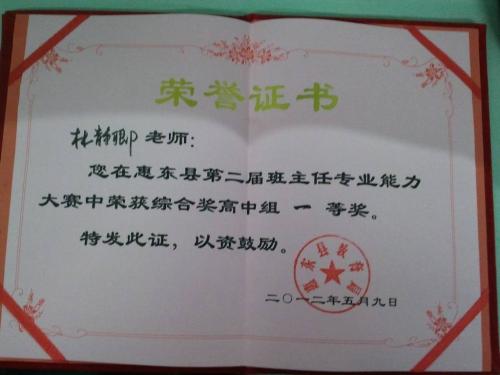 荣誉证书
林静卿 老师:
您在惠东县第二届班主任专业能力
大赛中荣获综合奖高中组 一 等奖。
特发此证，以资鼓励。
惠东县教育局
二〇一二年五月九日